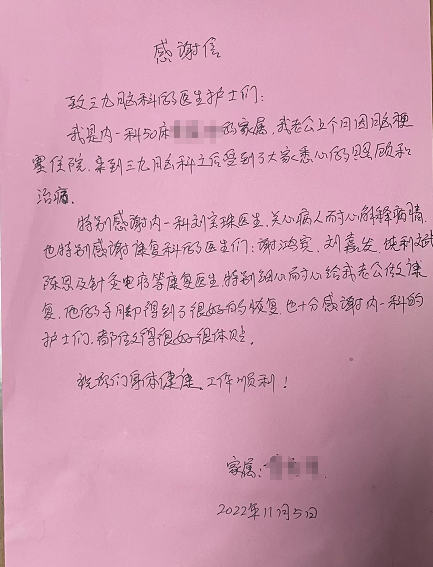 感谢信
致三九脑科的医生护士们:
我是内一科50床 的家属,我老公上个月因脑梗
塞住院,来到三九脑科之后受到了大家悉心的照顾和
治病。
特别感谢内一科刘宝珠医生,关心病人而耐心解释病情,
也特别感谢康复科的医生们:谢鸿宾、刘嘉发、
陈 及针灸电疗等康复医生,特别细心耐心给我老公做康
复,他的手脚都得到了很好的恢复,也十分感谢内一科的
护士们,都做得很好很体贴。
祝你们身体健康、工作顺利!
家属:
2022年11月5日